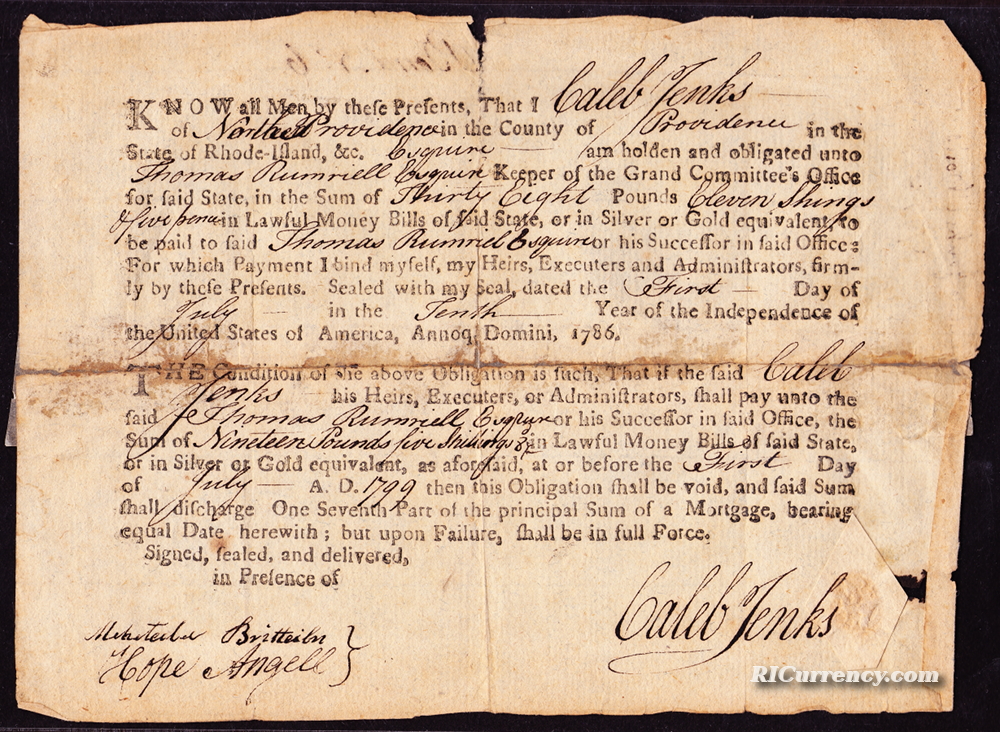 KNOW all Men by these Presents, That I Caleb Jenks
of North Providence in the County of Providence in the
State of Rhode-Island, &c. Esquire am holden and obligated unto
Thomas Rumriell Esquire Keeper of the Grand Committee's Office
for said State, in the Sum of Thirty Eight Pounds Eleven Shings
& five pence in Lawful Money Bills of said State, or in Silver or Gold equivalent, to
be paid to said Thomas Rumriel Esquire or his Successor in said Office:
For which Payment I bind myself, my Heirs, Executers and Administrators, firm-
ly by these Presents. Sealed with my Seal, dated the First Day of
July in the Tenth Year of the Independence of
the United States of America, Annoq. Domini, 1786.
THE Condition of the above Obligation is such, That if the said Caleb
Jenks his Heirs, Executers, or Administrators, shall pay unto the
said Thomas Rumriell Esquire or his Successor in said Office, the
Sum of Nineteen Pounds five Shillings & in Lawful Money Bills of said State,
or in Silver or Gold equivalent, as aforesaid, at or before the First Day
of July A. D. 1799 then this Obligation shall be void, and said Sum
shall discharge One Seventh Part of the principal Sum of a Mortgage, bearing
equal Date herewith; but upon Failure, shall be in full Force.
Signed, sealed, and delivered,
in Presence of
Caleb Jenks
Hope Angell
RICurrency.com